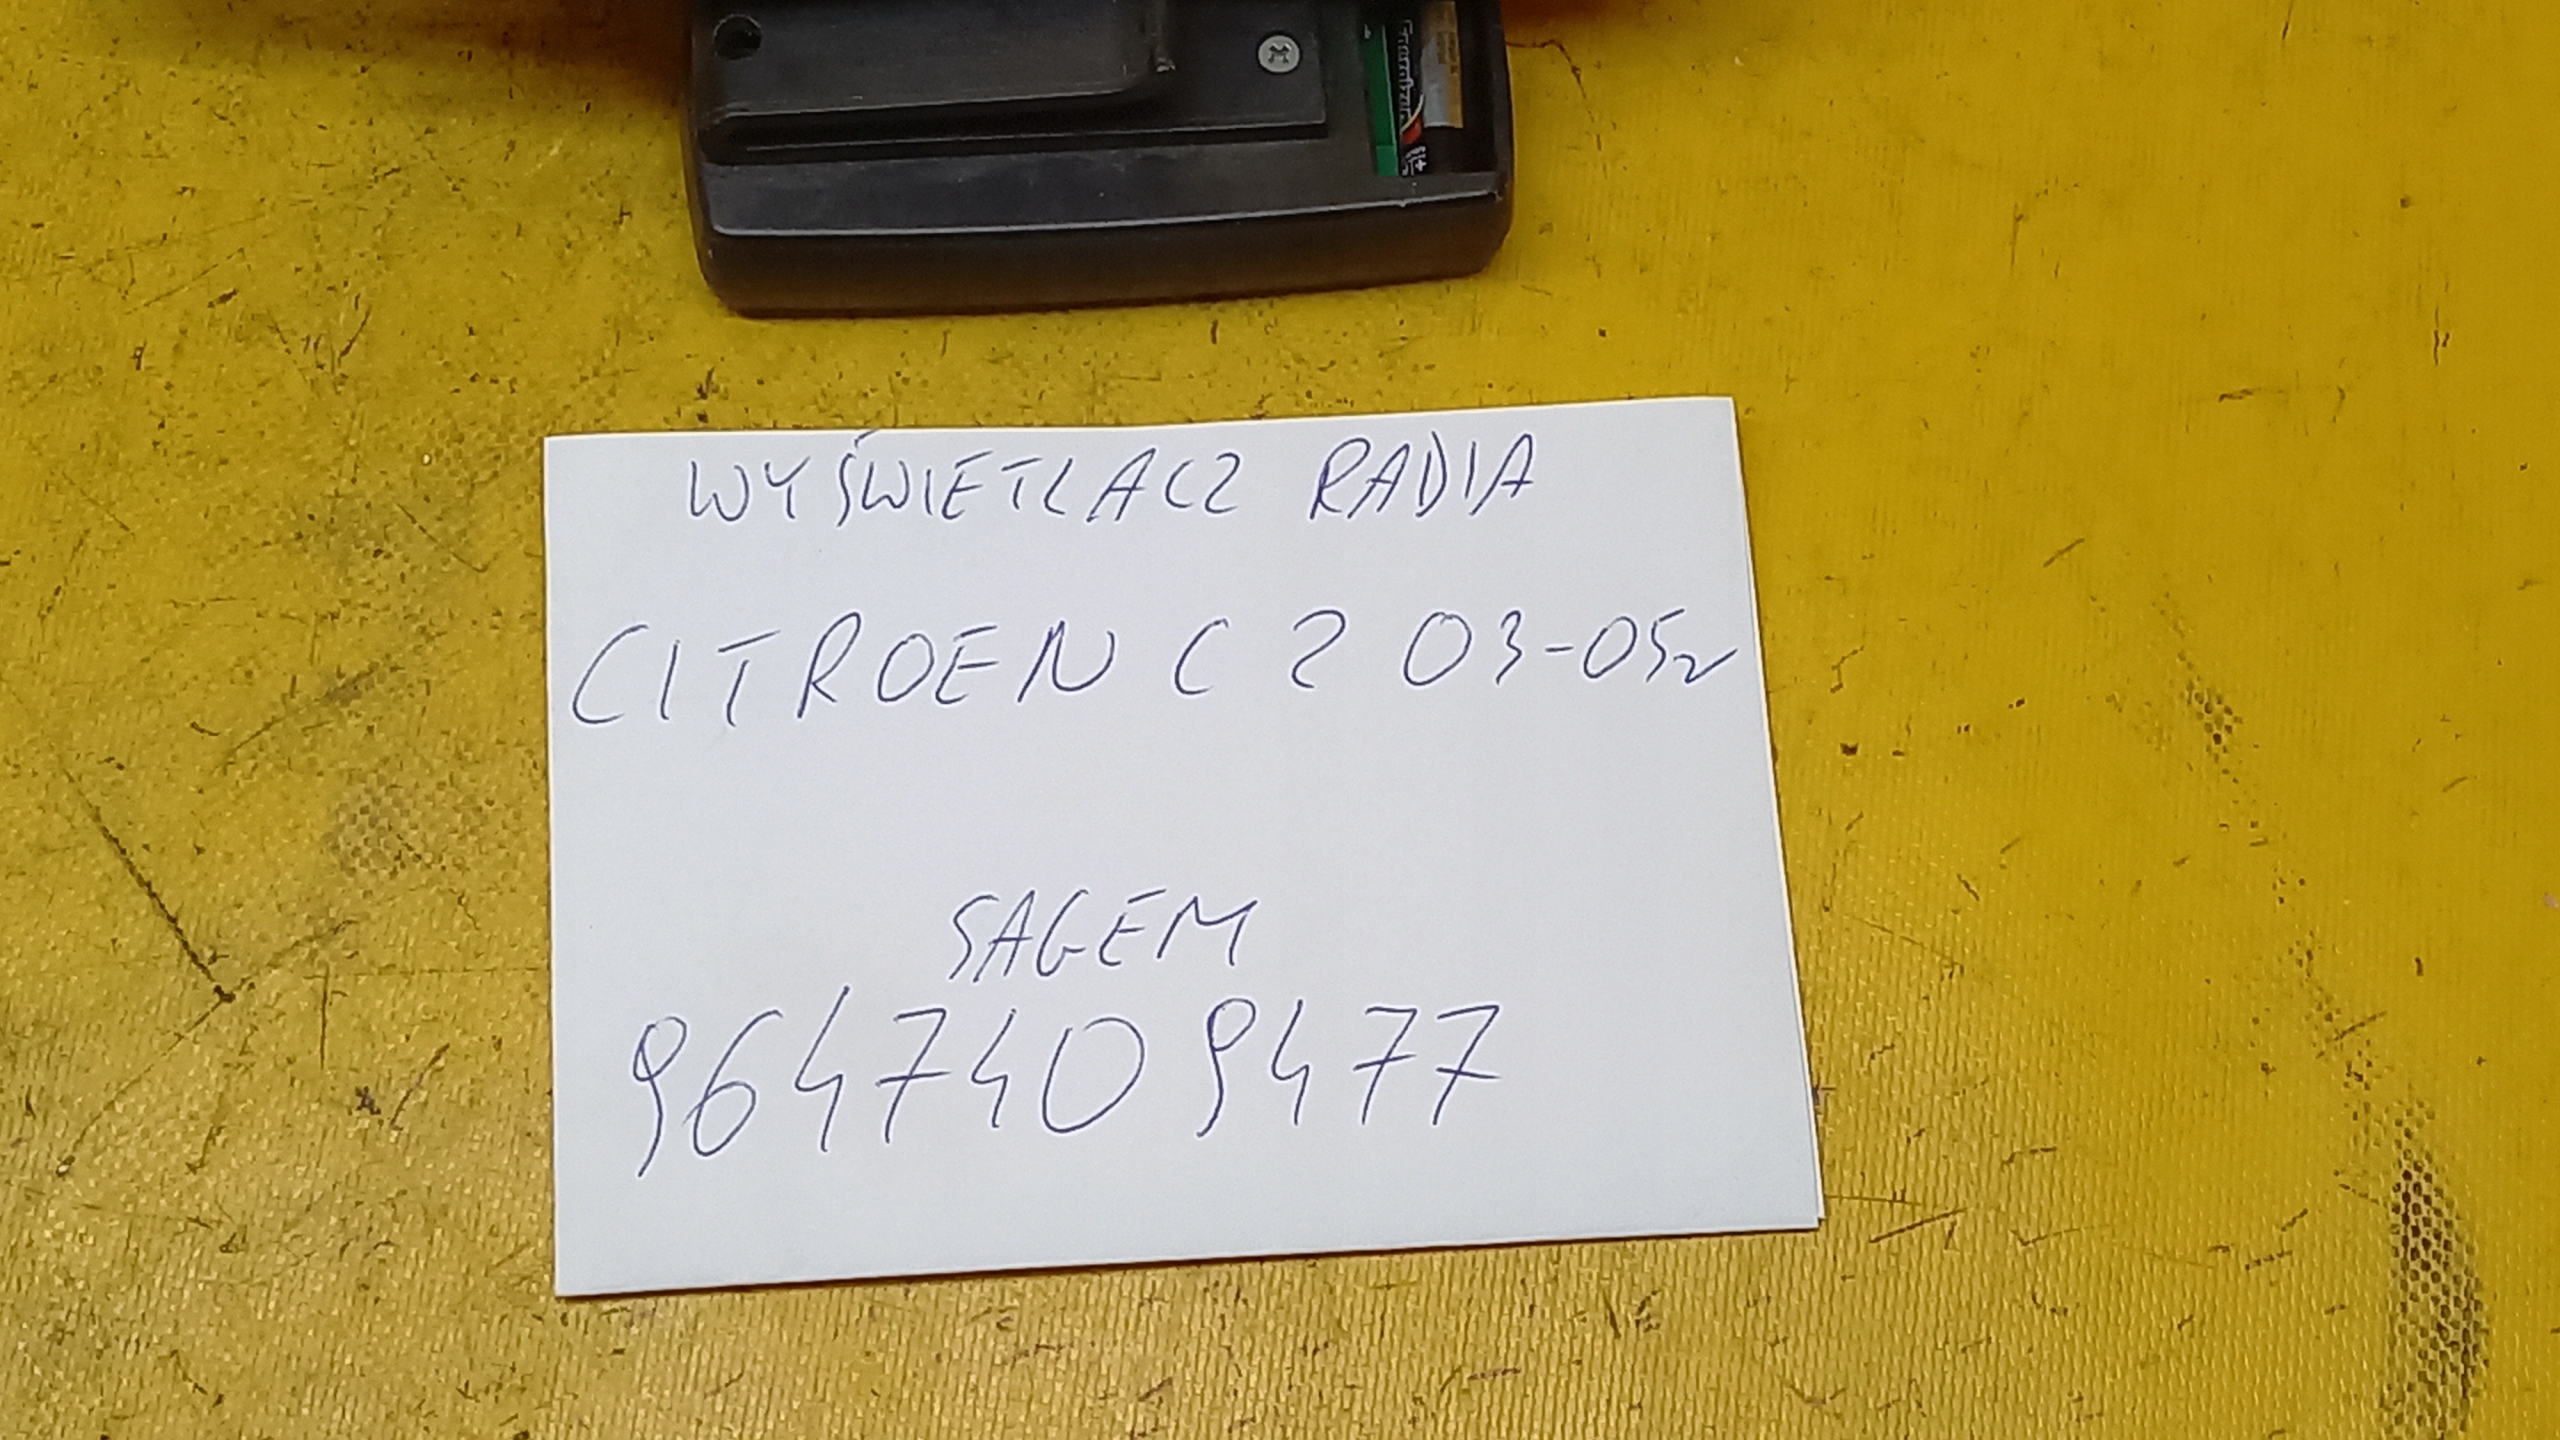 WYŚWIETLACZ RADIA
CITROEN C2 03-05r
SAGEM
9647409477